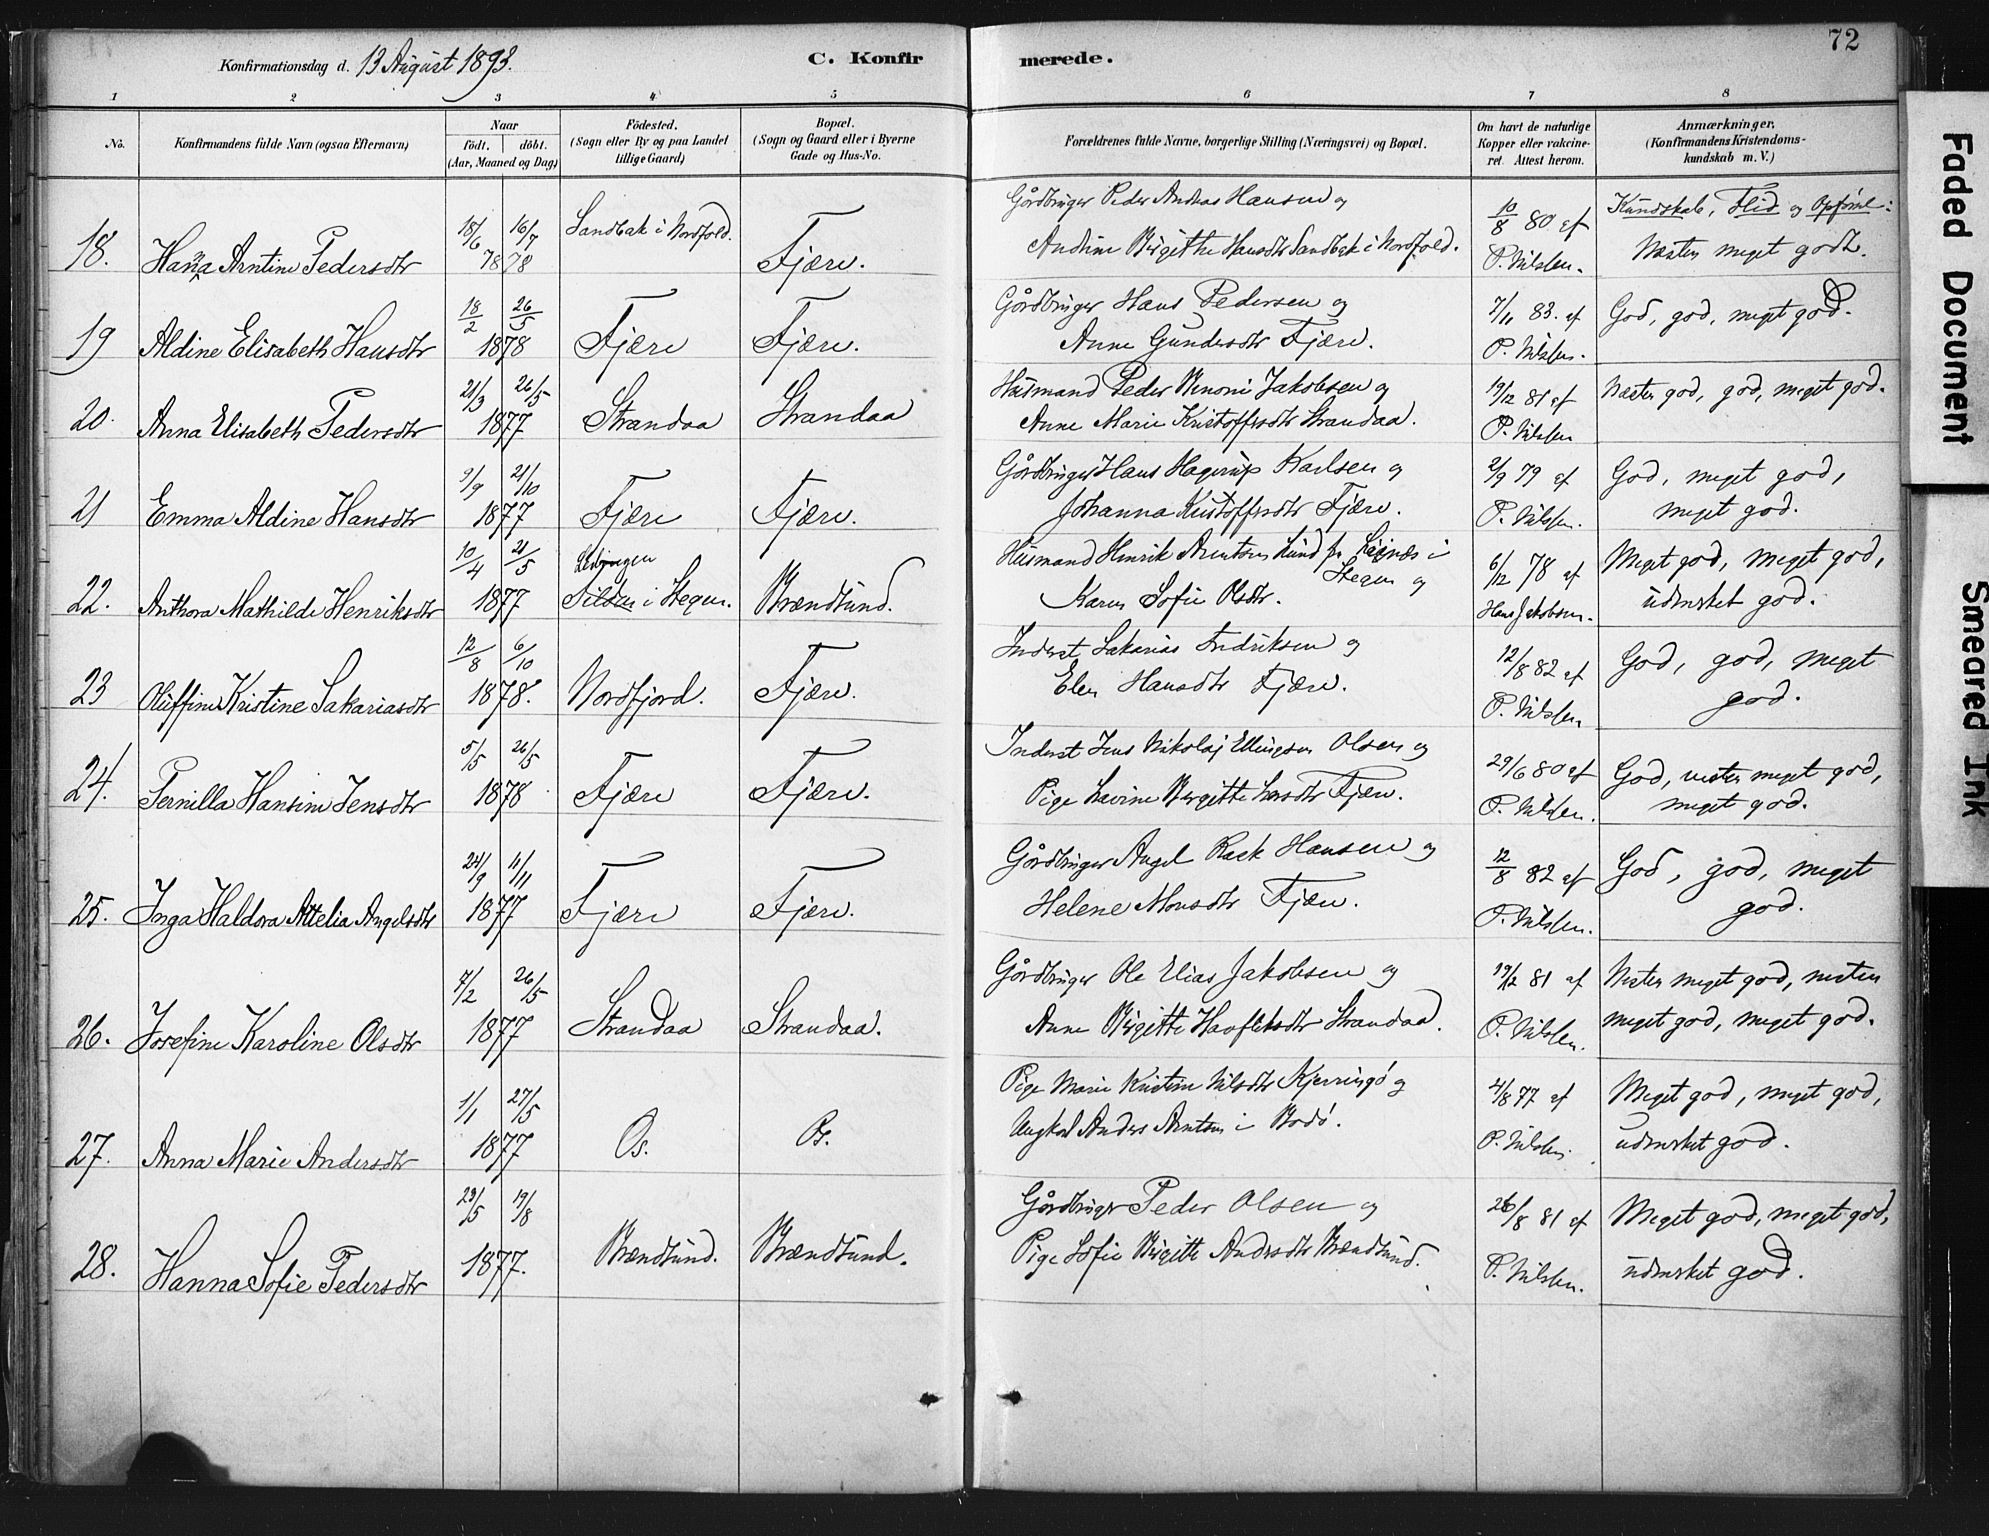 72
Konfirmationsdag d. 13 August 1893.
C. Konfirmerede.
1 2 3 4 5 6 7 8
No.
Konfirmandens fulde Navn (ogsaa Efternavn)
Naar
födt. döbt.
(Aar, Maaned og Dag)
Födested.
(Sogn eller By og paa Landet
tillige Gaard)
Bopæl.
(Sogn og Gaard eller i Byerne
Gade og Hus-No.
Forældrenes fulde Navne, borgerlige Stilling (Næringsvei) og Bopæl.
Om havt de naturlige
Kopper eller vakcine-
ret. Attest herom.
Anmærkninger.
(Konfirmandens Kristendoms-
kundskab m. V.)
18. Hanna Arntine Pedersdtr 18/6 78 16/7 78 Sandbak i Nordfold. Fjære.
Gårdbruger Peder Andreas Hansen og
Andine Birgitte Hansdtr Sandbak i Nordfold.
10/8 80 af
P. Nilsen.
Kundskab, Flid og Opførsel:
Næsten meget godt.
19 Aldine Elisabeth Hansdtr 18/2 26/5 1878 Fjære Fjære.
Gårdbruger Hans Pedersen og
Anne Gundersdtr Fjære.
7/11 83. af
P. Nilsen.
God, god, meget god.
20. Anna Elisabeth Pedersdtr 21/3 26/5 1877 Strandaa Strandaa
Husmand Peder Benoni Jakobsen og
Anne Marie Kristoffersdtr Strandaa.
19/12 81 af
P. Nilsen
Næsten god, god, meget god.
21 Emma Aldine Hansdtr 9/9 21/10 1877 Fjære Fjære.
Gårdbruger Hans Hagerup Karlsen og
Johanna Kristoffersdtr Fjære.
2/9 79 af
P. Nilsen.
God, meget god,
meget god.
22. Anthora Mathilde Henriksdtr 10/4 21/5 1877 i Stegen. Brændsund.
Husmand Henrik Arntsen Lund fr i
Stegen og
Karen Sofie Olsdtr.
6/12 78 af
Hans Jakobsen.
Meget god, meget god,
udmerket god.
23 Oluffine Kristine Sakariasdtr 12/8 6/10 1878. Nordfjord. Fjære.
Inderst Sakarias Fredriksen og
Elen Hansdtr Fjære.
12/8 82 af
P. Nilsen
God, god, meget
god.
24. Pernilla Hansine Jensdtr 5/5 26/5 1878 Fjære Fjære.
Inderst Jens Nikolaj Ellingsen Olsen og
Pige Lavine Bergitte Larsdtr Fjære.
29/6 80 af
P. Nilsen.
God, næsten meget god,
meget god.
25. Inga Haldora Attelia Angelsdtr 24/9 11/11 1877 Fjære Fjære.
Gårdbruger Angel Rask Hansen og
Helene Monsdtr Fjære.
12/8 82 af
P. Nilsen.
God, god, meget
god.
26. Josefine Karoline Olsdtr 7/2 26/5 1877 Strandaa Strandaa.
Gårdbruger Ole Elias Jakobsen og
Anne Birgitte Strandaa.
19/12 81 af
P. Nilsen.
Næsten meget god, næsten
meget god, meget god.
27. Anna Marie Andersdtr 1/1 27/5 1877 Os. Os.
Pige Marie Kristine Nilsdtr Kjerringø og
Ungkarl Anders Arntsen i Bodø.
4/8 77 af
P. Nilsen.
Meget god, meget god,
udmerket god.
28. Hanna Sofie Pedersdtr 23/5 19/8 1877. Brændsund. Brændsund.
Gårdbruger Peder Olsen og
Pige Sofie Birgitte Andersdtr Brændsund.
26/8 81 af
P. Nilsen.
Meget god, meget god,
udmerket god.
Faded Document
Smeared Ink